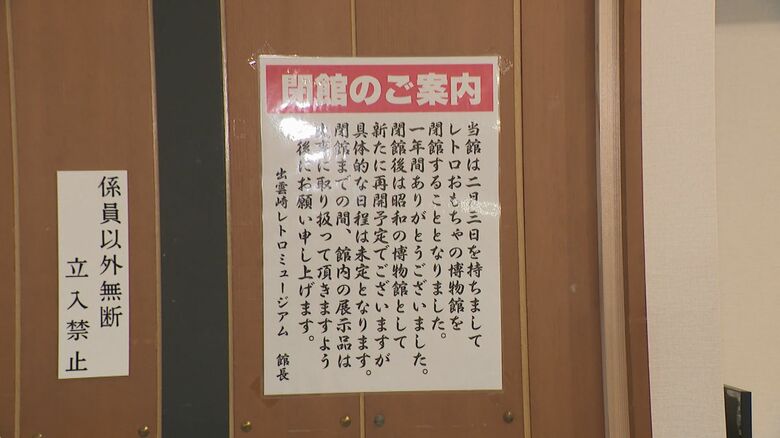 閉館のご案内
当館は二月三日を持ちまして
レトロおもちゃの博物館を
閉館することとなりました。
一年間ありがとうございました。
閉館後は昭和の博物館として
新たに再開予定でございますが
具体的な日程は未定となります。
閉館までの間、館内の展示品は
大事に取り扱って頂きますよう
最後にお願い申し上げます。
出雲崎レトロミュージアム 館長
係員以外無断
立入禁止